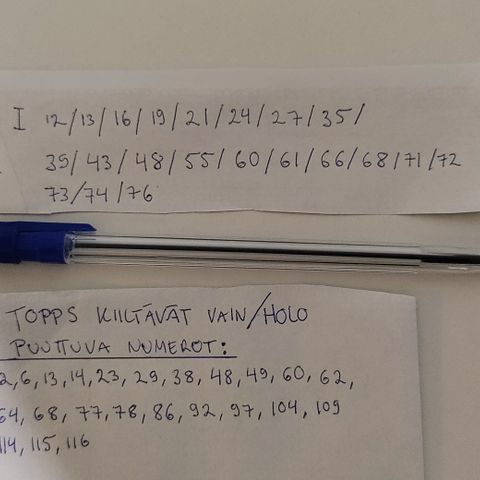 I 12/13/16/19/21/24/27/35/
39/43/48/55/60/61/66/68/71/72
73/74/76
TOPPS KIILTÄVÄT VAIN/HOLO
PUUTTUVA NUMEROT:
2,6,13,14,23,29,38,48,49,60,62,
64,68,77,78,86,92,97,104,109
114,115,116